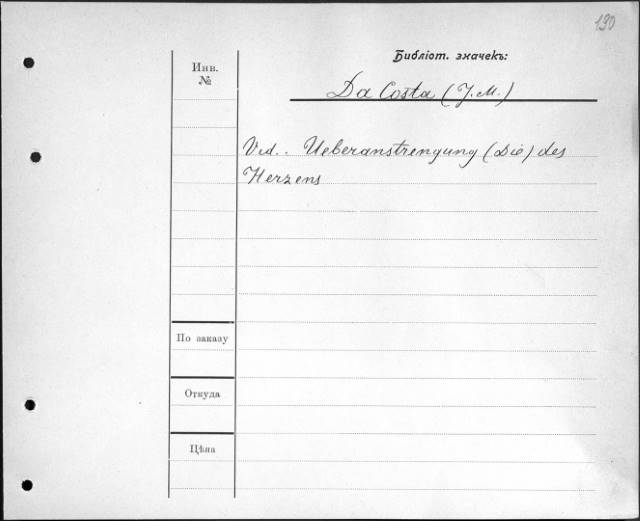 190
Библіот. значекъ:
Инв.
№
Da Costa (J. M.)
Vid.. Ueberanstrengung (Die) des
Herzens
По заказу
Откуда
Цѣна